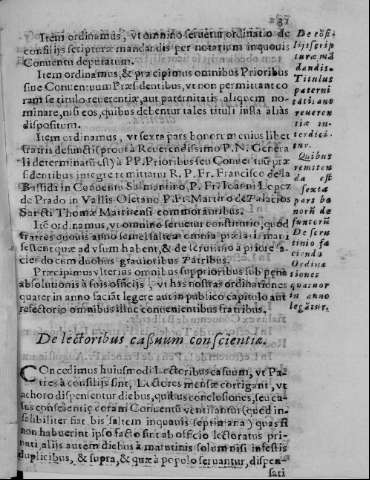 37
Item ordinamus, vt omnino seruetur ordinatio de
consilijs scripturæ mandandis per notarium in quouis
Conuentu deputatum.
Item ordinamus, & præcipimus omnibus Prioribus
siue Conuentuum Præsidentibus, vt non permittant co
ram se titulo reuerentiæ, aut paternitatis aliquem no-
minare, nisi eos, quibus debentur tales tituli iusta aliàs
dispositum.
Item ordinamus, vt sexta pars bonorum
fratris defuncti prout à Reuerendissimo P. N. Genera
li determinatũ est) à PP. Prioribus seu Conuentuũ præ
sidentibus integre remittatur R. P. Fr. Francisco de la
Bastida in Conuentu Salmantino P. Fr. Ioanni Lopez
de Prado in Vallis Oletano P. Fr. Martino de Palacios
Sancti Thomæ Matritensi commorantibus.
Itẽ ordinamus, vt omnino seruetur constitutio, quòd
fratres quouis anno semel saltem omnia prælati mani
festent quæ ad vsum habent, & de scrutinio a priore fa-
ciendo cum duobus grauioribus Patribus.
Præcipimus vlterius omnibus supprioribus sub pena
absolutionis à suis officijs, vt has nostras ordinationes
quater in anno faciãt legere aut in publico capitulo aut
refectorio omnibus illuc conuenientibus fratribus.
De lectoribus casuum conscientiæ.
Concedimus huiusmodi Lectoribus casuum, vt Pa-
tres à consilijs sint, Lectores mensæ corrigant, vt
à choro dispensentur diebus, quibus conclusiones, seu ca-
sus conscientiæ coram Conuentu ventilantur (quod in-
fallibiliter fiat bis saltem in quauis septimana) quas si
non habuerint ipso facto sint ab officio lectoratus pri-
uati, alijs autem diebus à matutinis solum nisi festis
duplicibus, & supra, & quæ à populo seruantur, dispen-
sati
De cõsi-
lijs scrip-
turæ mã
dandis.
Titulus
paterni
tatis
reueren
tiæ in-
terdici-
tur.
Quibus
remitten
da est
sexta
pars bo
norũ de
functorũ
De scru
tinio fa
cienda
Ordina
tiones
quatuor
in anno
legãtur.